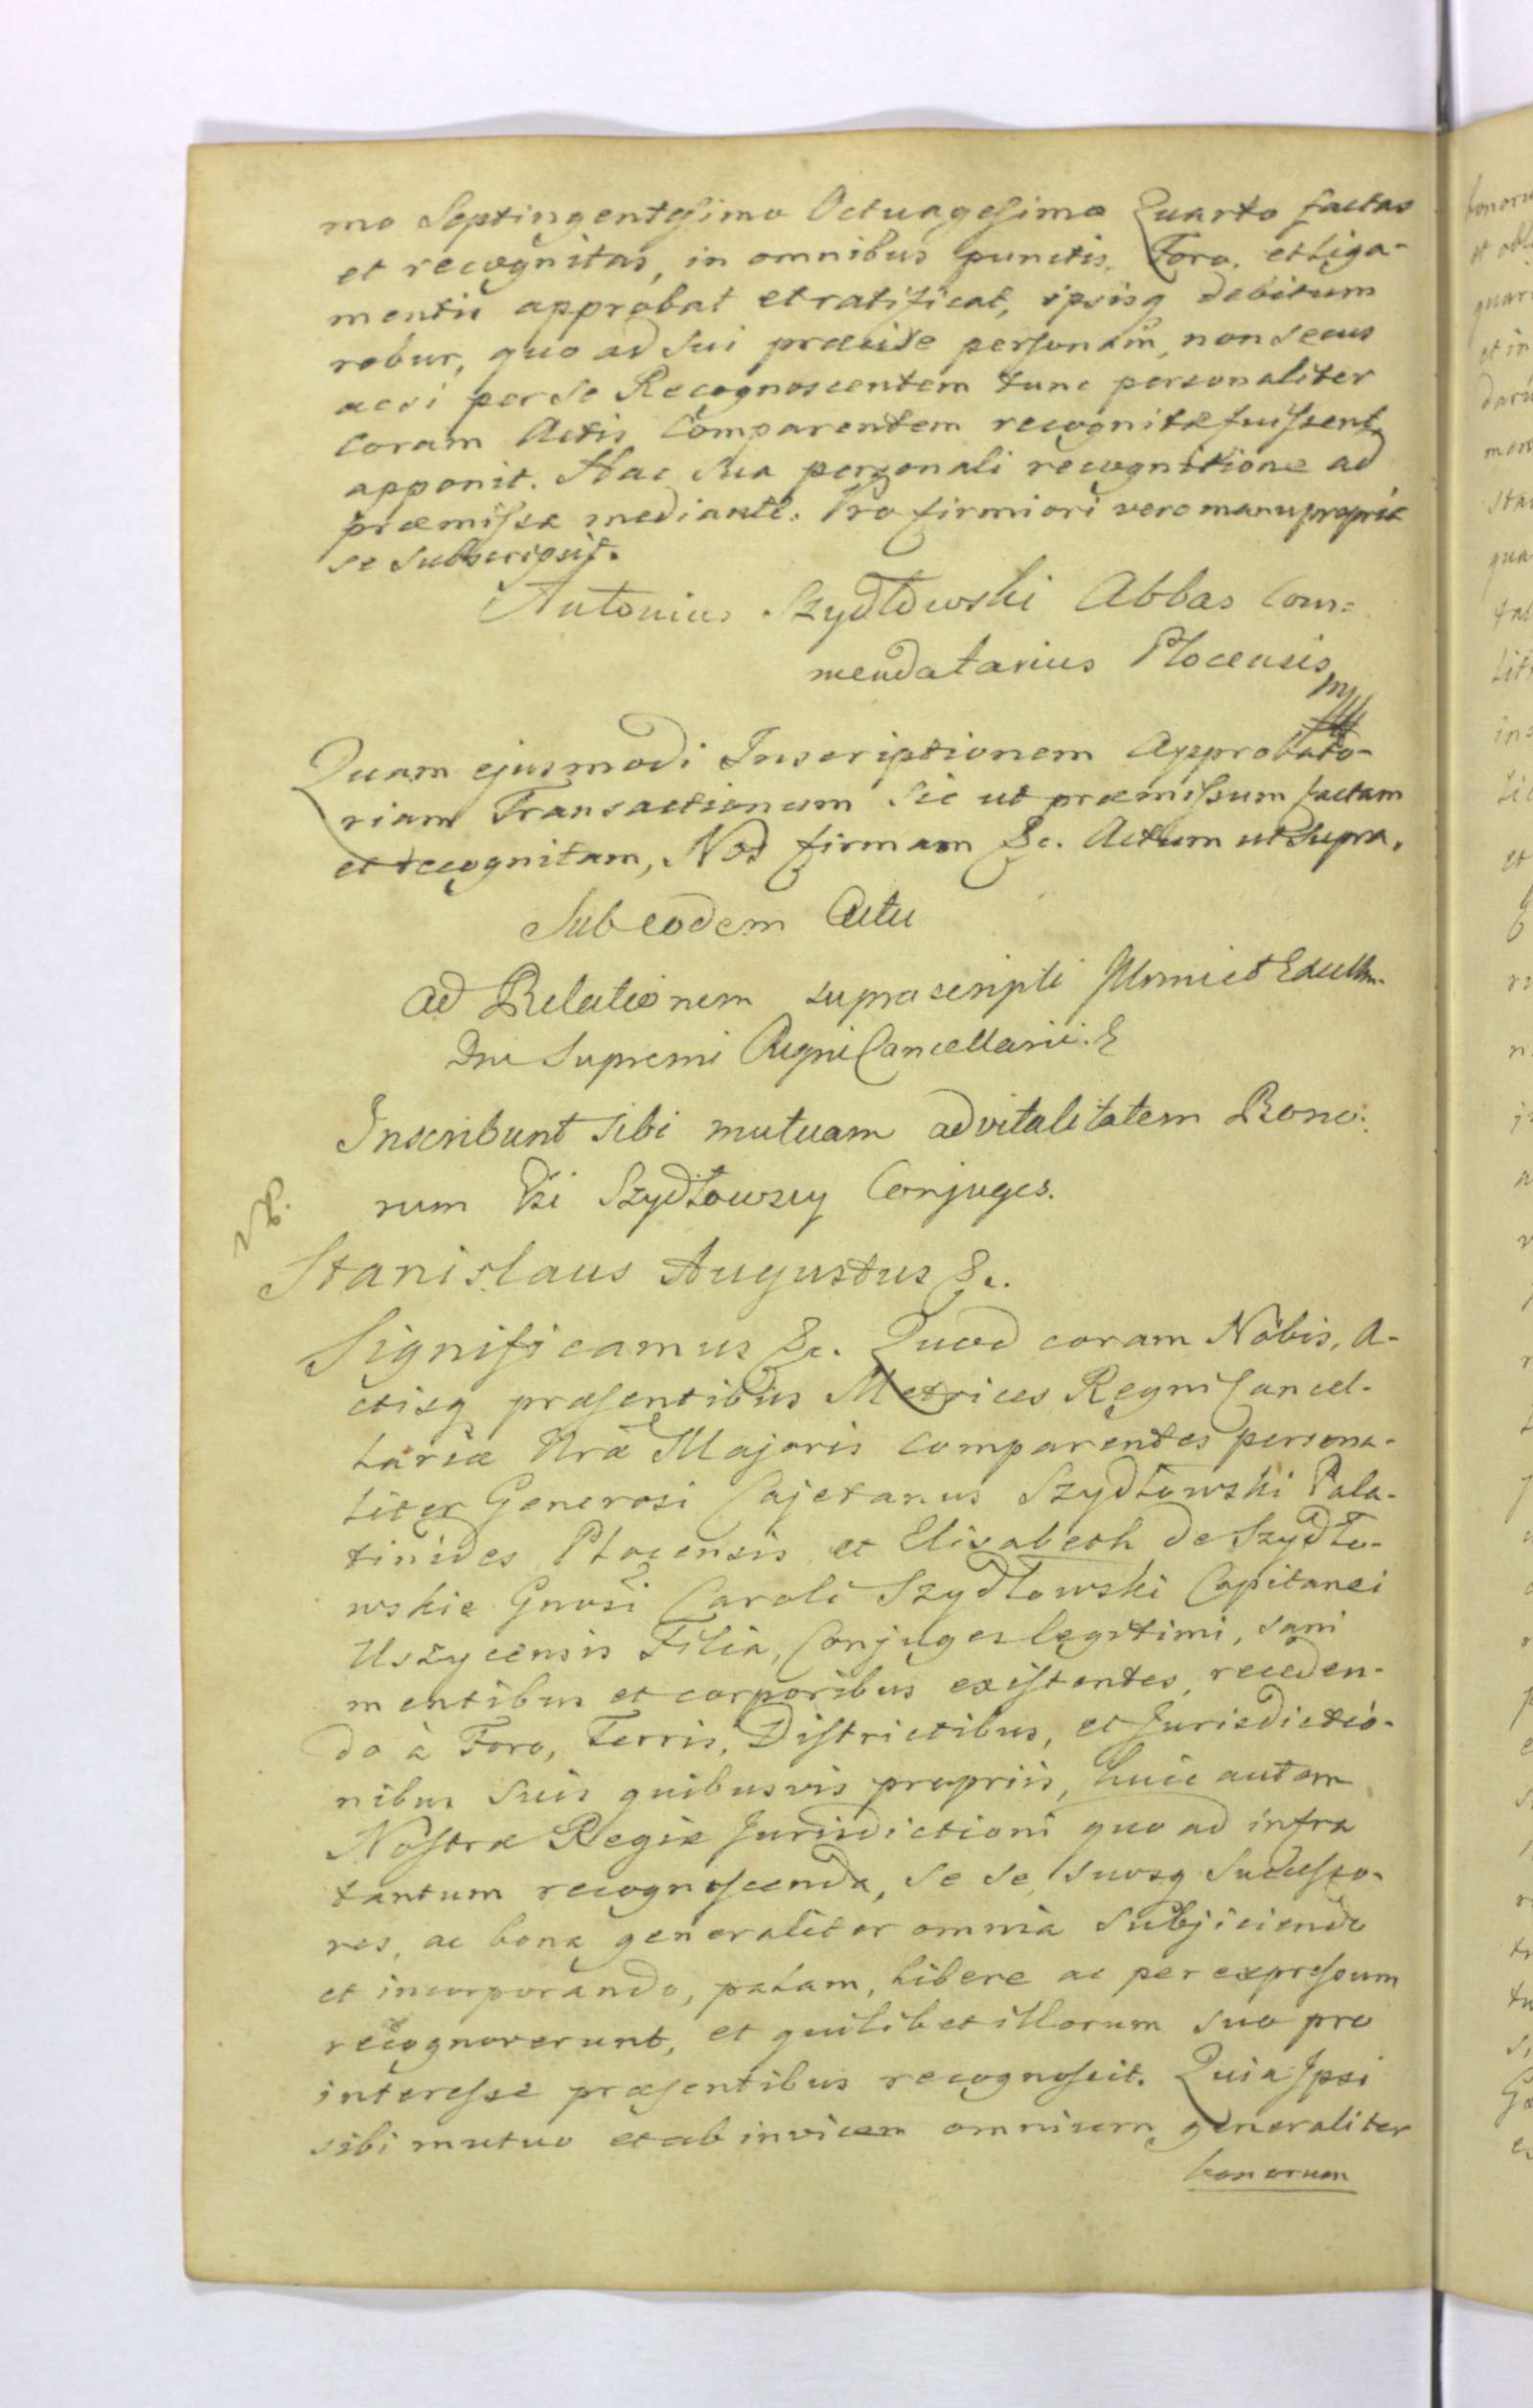 mo Septingentesimo Octuagesimo Quarto factas
et recognitas, in omnibus punctis, Foro, et Liga-
mentis approbat et ratificat, ipsisq debitum
robur, quo ad sui præcise personam, non secus
acsi per se Recognoscentem tunc personaliter
coram Actis Comparentem recognitæ fuissent,
apponit. Hac sua personali recognitione ad
præmissa mediante. Pro firmiori vero manu propria
se subscripsit.
Antonius Szydłowski Abbas Com=
mendatarius Plocensis
Quam ejusmodi Inscriptionem Approbato-
riam Transactionum sic ut præmissum factam
et recognitam, Nos firmam &c. Actum ut supra.
Sub eodem Actu
Ad Relationem suprascripti Illmi et Excellmi
Dni Supremi Regni Cancellarii.
Inscribunt sibi mutuam advitalitatem Bono-
rum Gsi Szydłowscy Conjuges.
NB.
Stanislaus Augustus &c.
Significamus &c. Quod coram Nobis, A-
ctisq præsentibus Metrices Regni Cancel-
lariæ Nræ Majoris comparentes persona-
liter Generosi Cajetanus Szydłowski Pala-
tinides Plocensis et Elisabeth de Szydło-
wskie Gnosi Caroli Szydłowski Capitanei
Uszycensis Filia, Conjuges legitimi, sani
mentibus et corporibus existentes, receden-
do à Foro, Terris, Districtibus, et Jurisdictio-
nibus suis quibusvis propriis, huic autem
Nostræ Regiæ Jurisdictioni quo ad infra
tantum recognoscenda, se se, suosq Successo-
res, ac bona generaliter omnia subjiciendo
et incorporando, palam, libere ac per expressum
recognoverunt, et quilibet illorum suo pro
interesse præsentibus recognoscit. Quia Ipsi
sibi mutuo et ab invicem omnium generaliter
bonorum